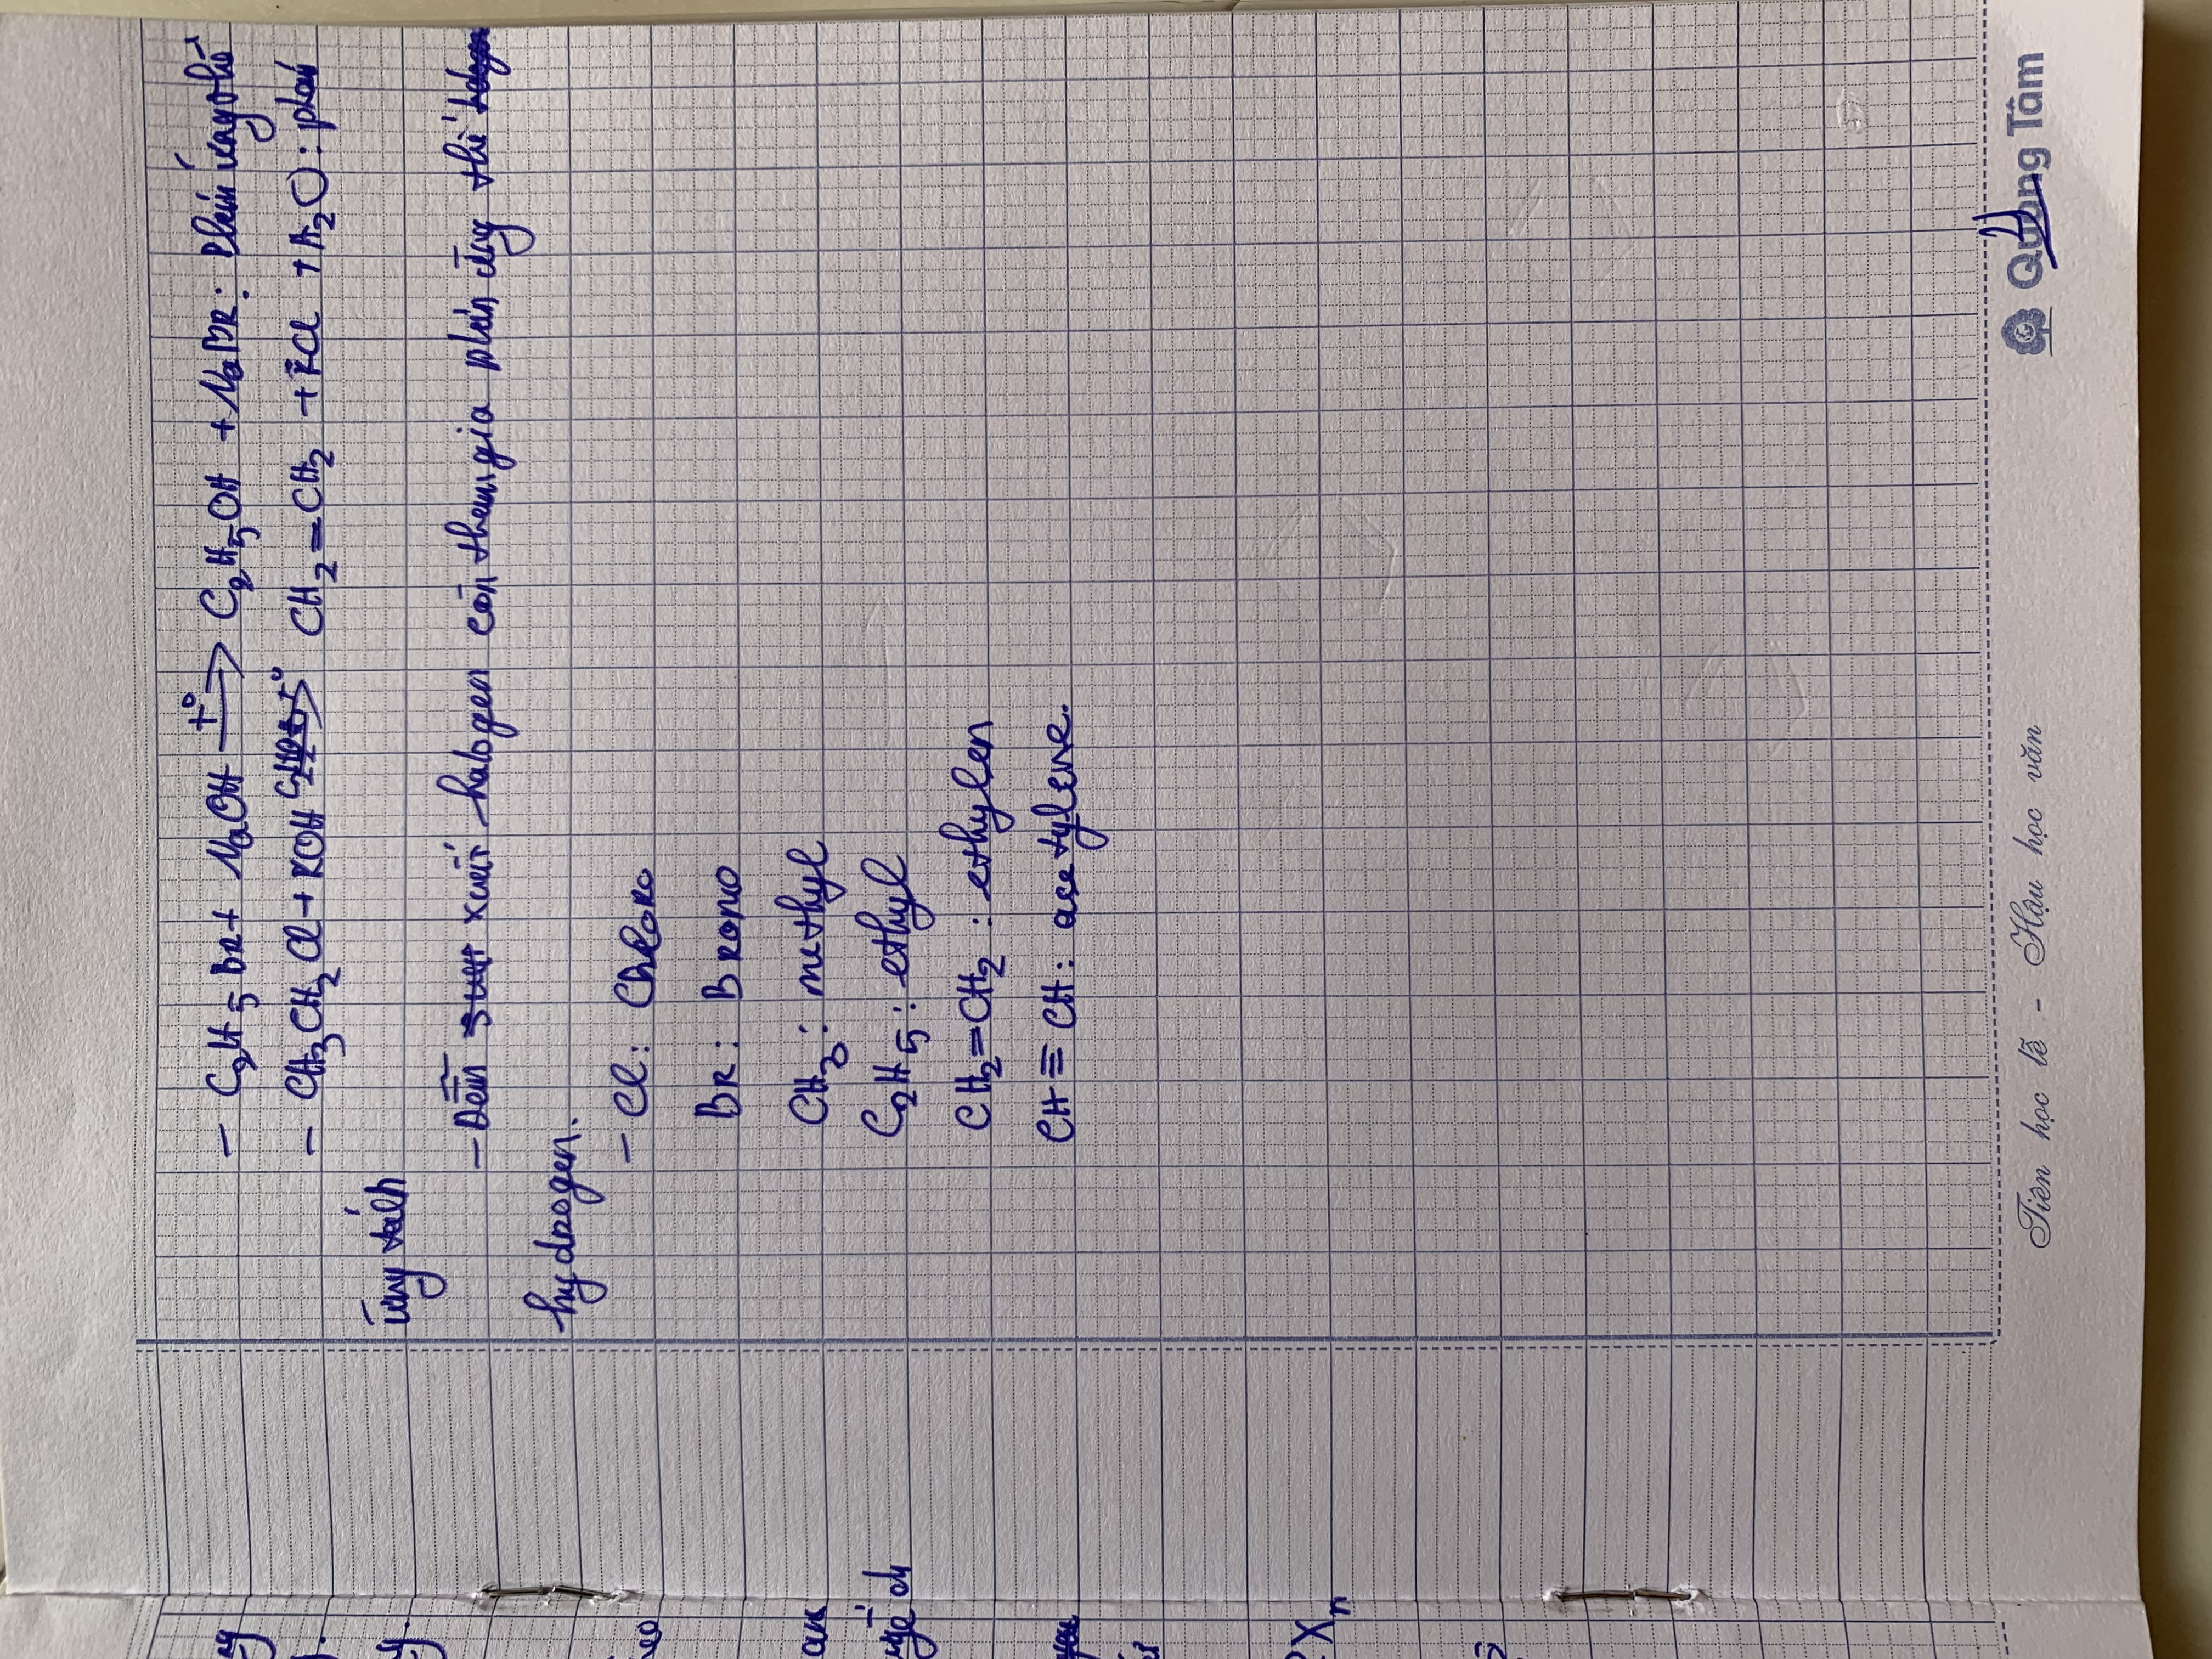 - C₂H₅Br + NaOH t° → C₂H₅OH + NaBr: phản ứng thế
- CH₃CH₂Cl + KOH t° → CH₂=CH₂ + KCl + H₂O: phản
ứng tách
- Dẫn xuất halogen còn tham gia phản ứng thế
hydrogen.
- Cl: Chloro
Br: Bromo
CH₃: methyl
C₂H₅: ethyl
CH₂=CH₂: ethylen
CH≡CH: acetylene.
Xₙ
Tiên học lễ - Hậu học văn
Quang Tâm